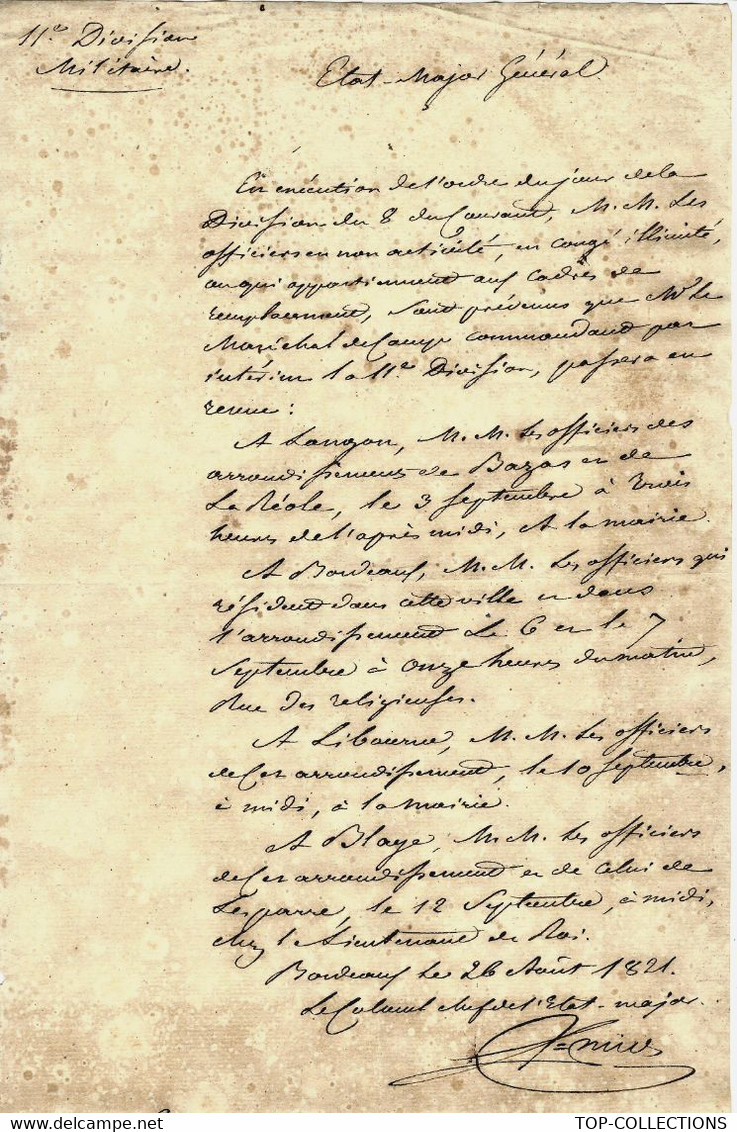 11e Division
Militaire.
Etat-Major Général
En exécution de l'ordre du jour de la
Division du 8 du Courant, M.M. Les
officiers en non activité, en congé illimité,
ou qui appartiennent aux cadres de
remplacement, sont prévenus que Mr Le
Maréchal de Camp commandant par
intérim la 11e Division, passera en
revue :
A Langon, M.M. Les officiers des
arrondissements de Bazas et de
La Réole, le 3 septembre à trois
heures de l'après midi, à la mairie.
A Bordeaux, M.M. Les officiers qui
résident dans cette ville et dans
l'arrondissement Le 6 et le 7
Septembre à onze heures du matin,
Rue des religieuses.
A Libourne, M.M. Les officiers
de cet arrondissement, le 10 Septembre,
à midi, à la mairie.
A Blaye, M.M. Les officiers
de cet arrondissement et de celui de
Lesparre, le 12 Septembre, à midi,
chez le Lieutenant de Roi.
Bordeaux le 26 Août 1821.
Le Colonel chef de l'Etat-major.
TOP-COLLECTIONS